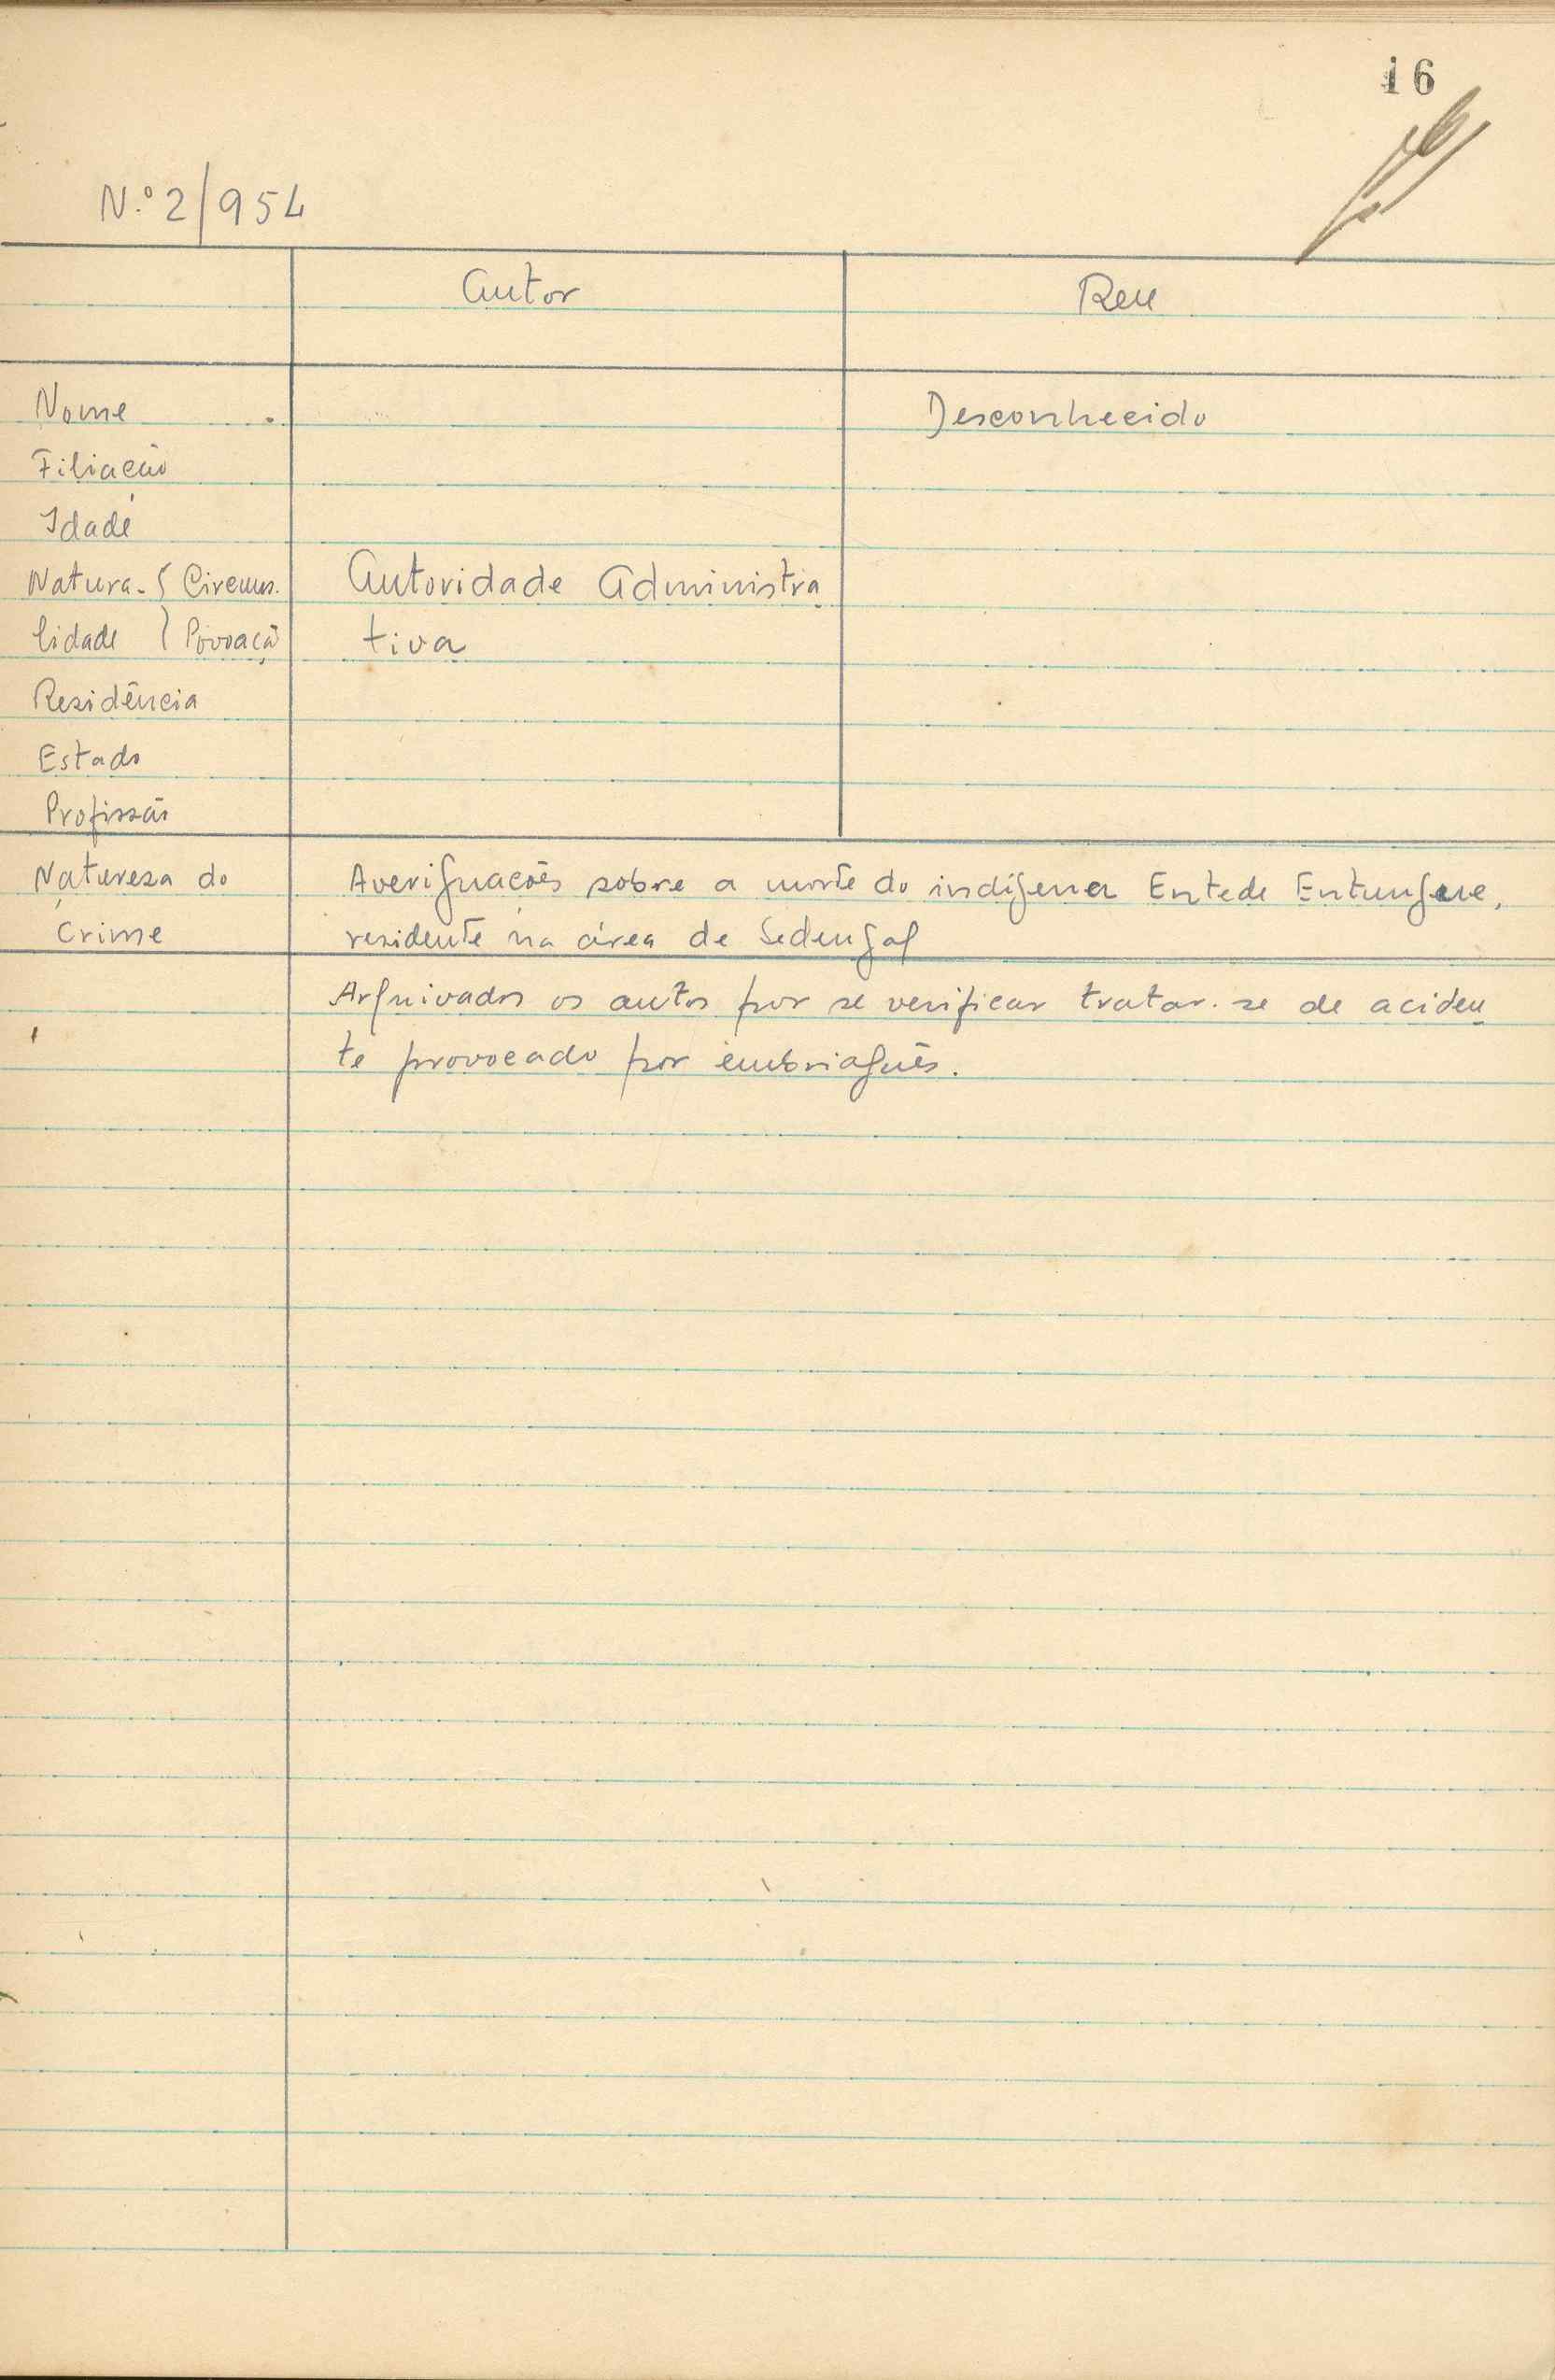 16
N.º 2/954
Autor Reu
Nome Desconhecido
Filiação
Idade
Natura- { Circuns. Autoridade Administra
lidade { Povoaçã tiva
Residência
Estado
Profissão
Natureza do Averiguações sobre a morte do indígena Entede Entungue,
Crime residente na área de Sedengal
Arquivados os autos por se verificar tratar-se de aciden
te provocado por embriaguês.